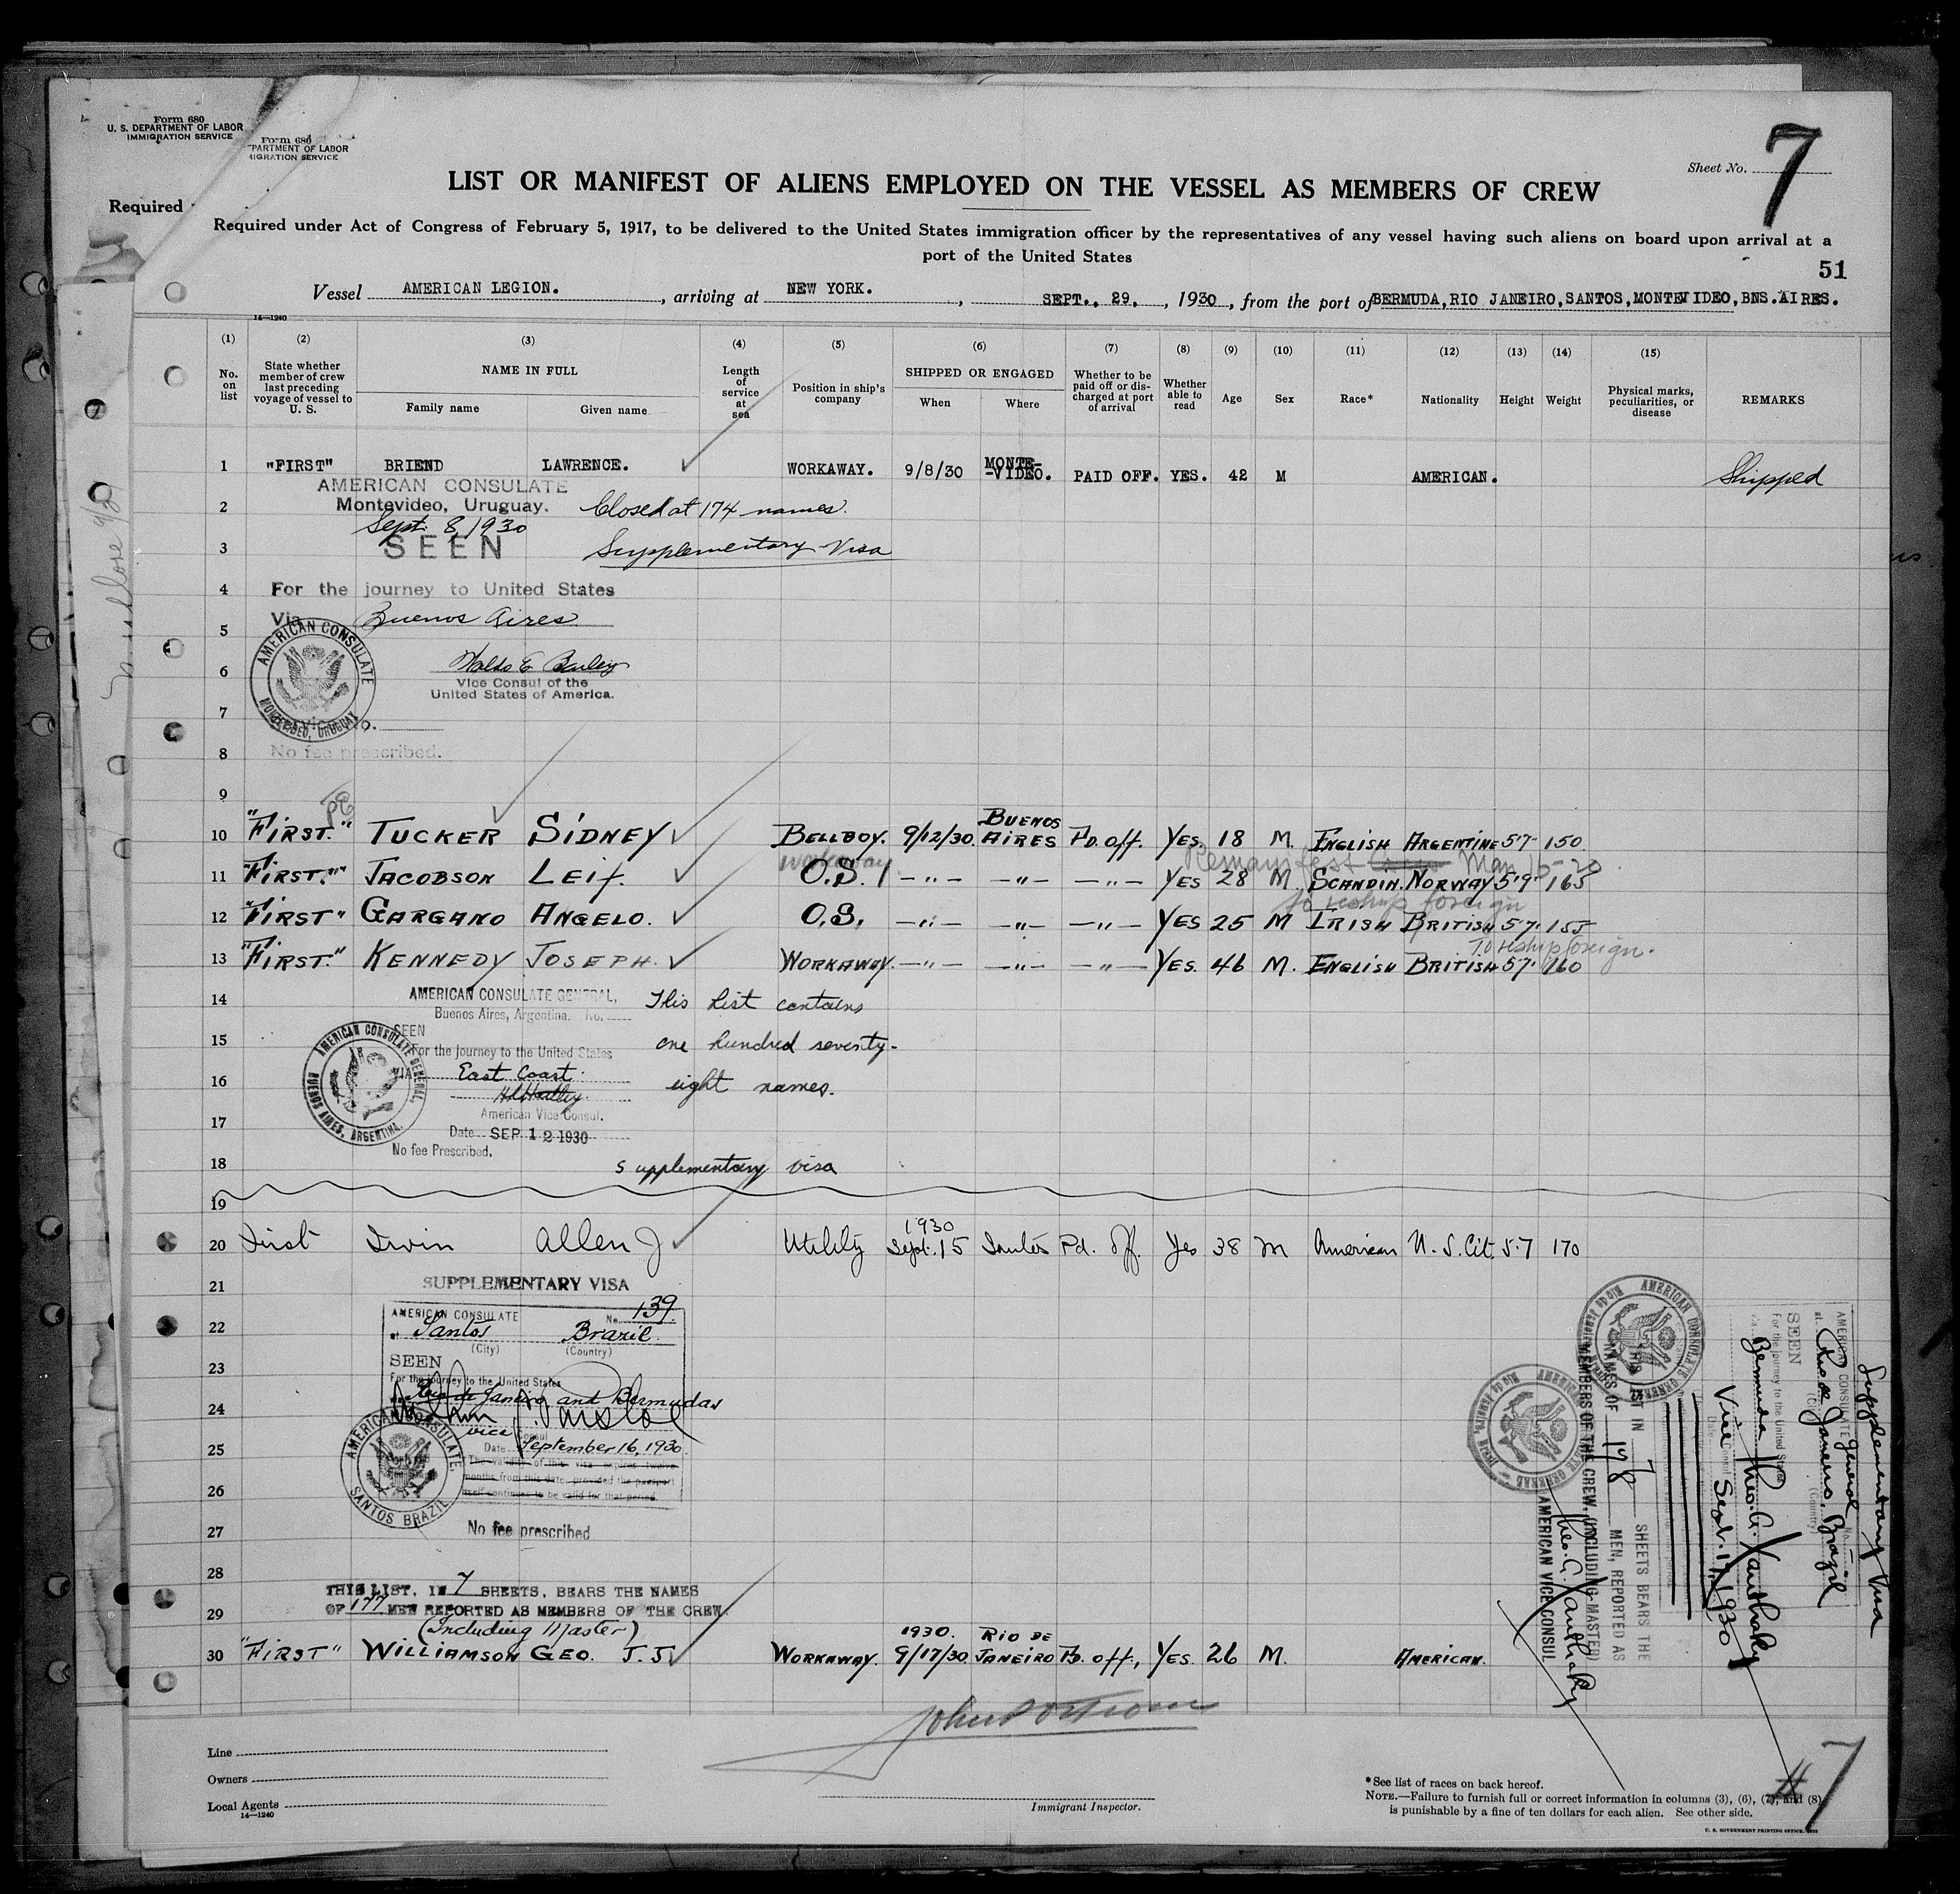 Form 680
U. S. DEPARTMENT OF LABOR
IMMIGRATION SERVICE
Form 680
PARTMENT OF LABOR
IGRATION SERVICE
Sheet No. 7
LIST OR MANIFEST OF ALIENS EMPLOYED ON THE VESSEL AS MEMBERS OF CREW
Required
Required under Act of Congress of February 5, 1917, to be delivered to the United States immigration officer by the representatives of any vessel having such aliens on board upon arrival at a
port of the United States
51
Vessel AMERICAN LEGION. , arriving at NEW YORK. , SEPT., 29, , 1930, from the port of BERMUDA,RIO JANEIRO,SANTOS,MONTEVIDEO,BNS.AIRES.
14—1240
(1) (2) (3) (4) (5) (6) (7) (8) (9) (10) (11) (12) (13) (14) (15)
No. on list
State whether member of crew last preceding voyage of vessel to U. S.
NAME IN FULL
Family name
Given name
Length of service at sea
Position in ship's company
SHIPPED OR ENGAGED
When
Where
Whether to be paid off or discharged at port of arrival
Whether able to read
Age
Sex
Race*
Nationality
Height
Weight
Physical marks, peculiarities, or disease
REMARKS
1 "FIRST" BRIEND LAWRENCE. WORKAWAY. 9/8/30 MONTE--VIDEO. PAID OFF. YES. 42 M AMERICAN. Shipped
AMERICAN CONSULATE
2 Montevideo, Uruguay. Closed at 174 names.
Sept. 8, 1930
3 SEEN Supplementary Visa
4 For the journey to United States
Via Buenos Aires
5
AMERICAN CONSULATE
MONTEVIDEO, URUGUAY
6 Waldo E. Bailey
Vice Consul of the
United States of America.
7
8 No fee prescribed.
9
10 "FIRST." TUCKER SIDNEY BELLBOY. 9/12/30. BUENOS AIRES PD. Off. YES. 18 M. ENGLISH ARGENTINE 5'7" 150.
workaway
11 "FIRST." JACOBSON LEIF. O.S. —"— —"— —"— YES 28 M. SCANDIN. NORWAY 5'9" 165
to reship foreign
12 "FIRST" GARGANO ANGELO. O.S. —"— —"— —"— YES 25 M IRISH BRITISH 5'7" 155
To reship foreign.
13 "FIRST." KENNEDY JOSEPH. WORKAWAY. —"— —"— —"— YES. 46 M. ENGLISH BRITISH 5'7" 160
14 AMERICAN CONSULATE GENERAL, This list contains
Buenos Aires, Argentina. No.
15 SEEN one hundred seventy-
For the journey to the United States
16 VIA East Coast. eight names.
AMERICAN CONSULATE GENERAL,
BUENOS AIRES, ARGENTINA.
American Vice Consul.
17 Date SEP 12 1930
No fee Prescribed.
18 Supplementary visa
19
20 First Irvin Allen J Utility 1930 Sept. 15 Santos Pd. Off. Yes 38 M American U. S. Cit. 5.7 170
21 SUPPLEMENTARY VISA
AMERICAN CONSULATE No. 139.
22 at Santos Brazil.
(City) (Country)
23 SEEN
For the journey to the United States
24 Rio de Janeiro and Bermudas
vice Consul
25 Date September 16, 1930.
The validity of this visa expires twelve
months from this date, provided the passport
itself continues to be valid for that period.
26
AMERICAN CONSULATE.
SANTOS BRAZIL
27 No fee prescribed
28 THIS LIST, IN 7 SHEETS, BEARS THE NAMES
29 OF 177 MEN REPORTED AS MEMBERS OF THE CREW.
(Including Master)
30 "FIRST" WILLIAMSON GEO. J.J. WORKAWAY. 1930. 9/17/30. RIO DE JANEIRO PD. off, YES. 26 M. AMERICAN.
Supplementary Visa
AMERICAN CONSULATE General No.
at Rio de Janeiro, Brazil
(Country)
SEEN
For the journey to the United States
via Bermuda
Vice Consul
Sept. 17, 1930
THIS LIST IN 7 SHEETS BEARS THE
NAMES OF 178 MEN, REPORTED AS
MEMBERS OF THE CREW, (INCLUDING MASTER)
AMERICAN VICE CONSUL
Line
Owners
Local Agents
14—1240
Immigrant Inspector.
*See list of races on back hereof.
NOTE.—Failure to furnish full or correct information in columns (3), (6), (7), and (8)
is punishable by a fine of ten dollars for each alien. See other side.
U. S. GOVERNMENT PRINTING OFFICE
#7